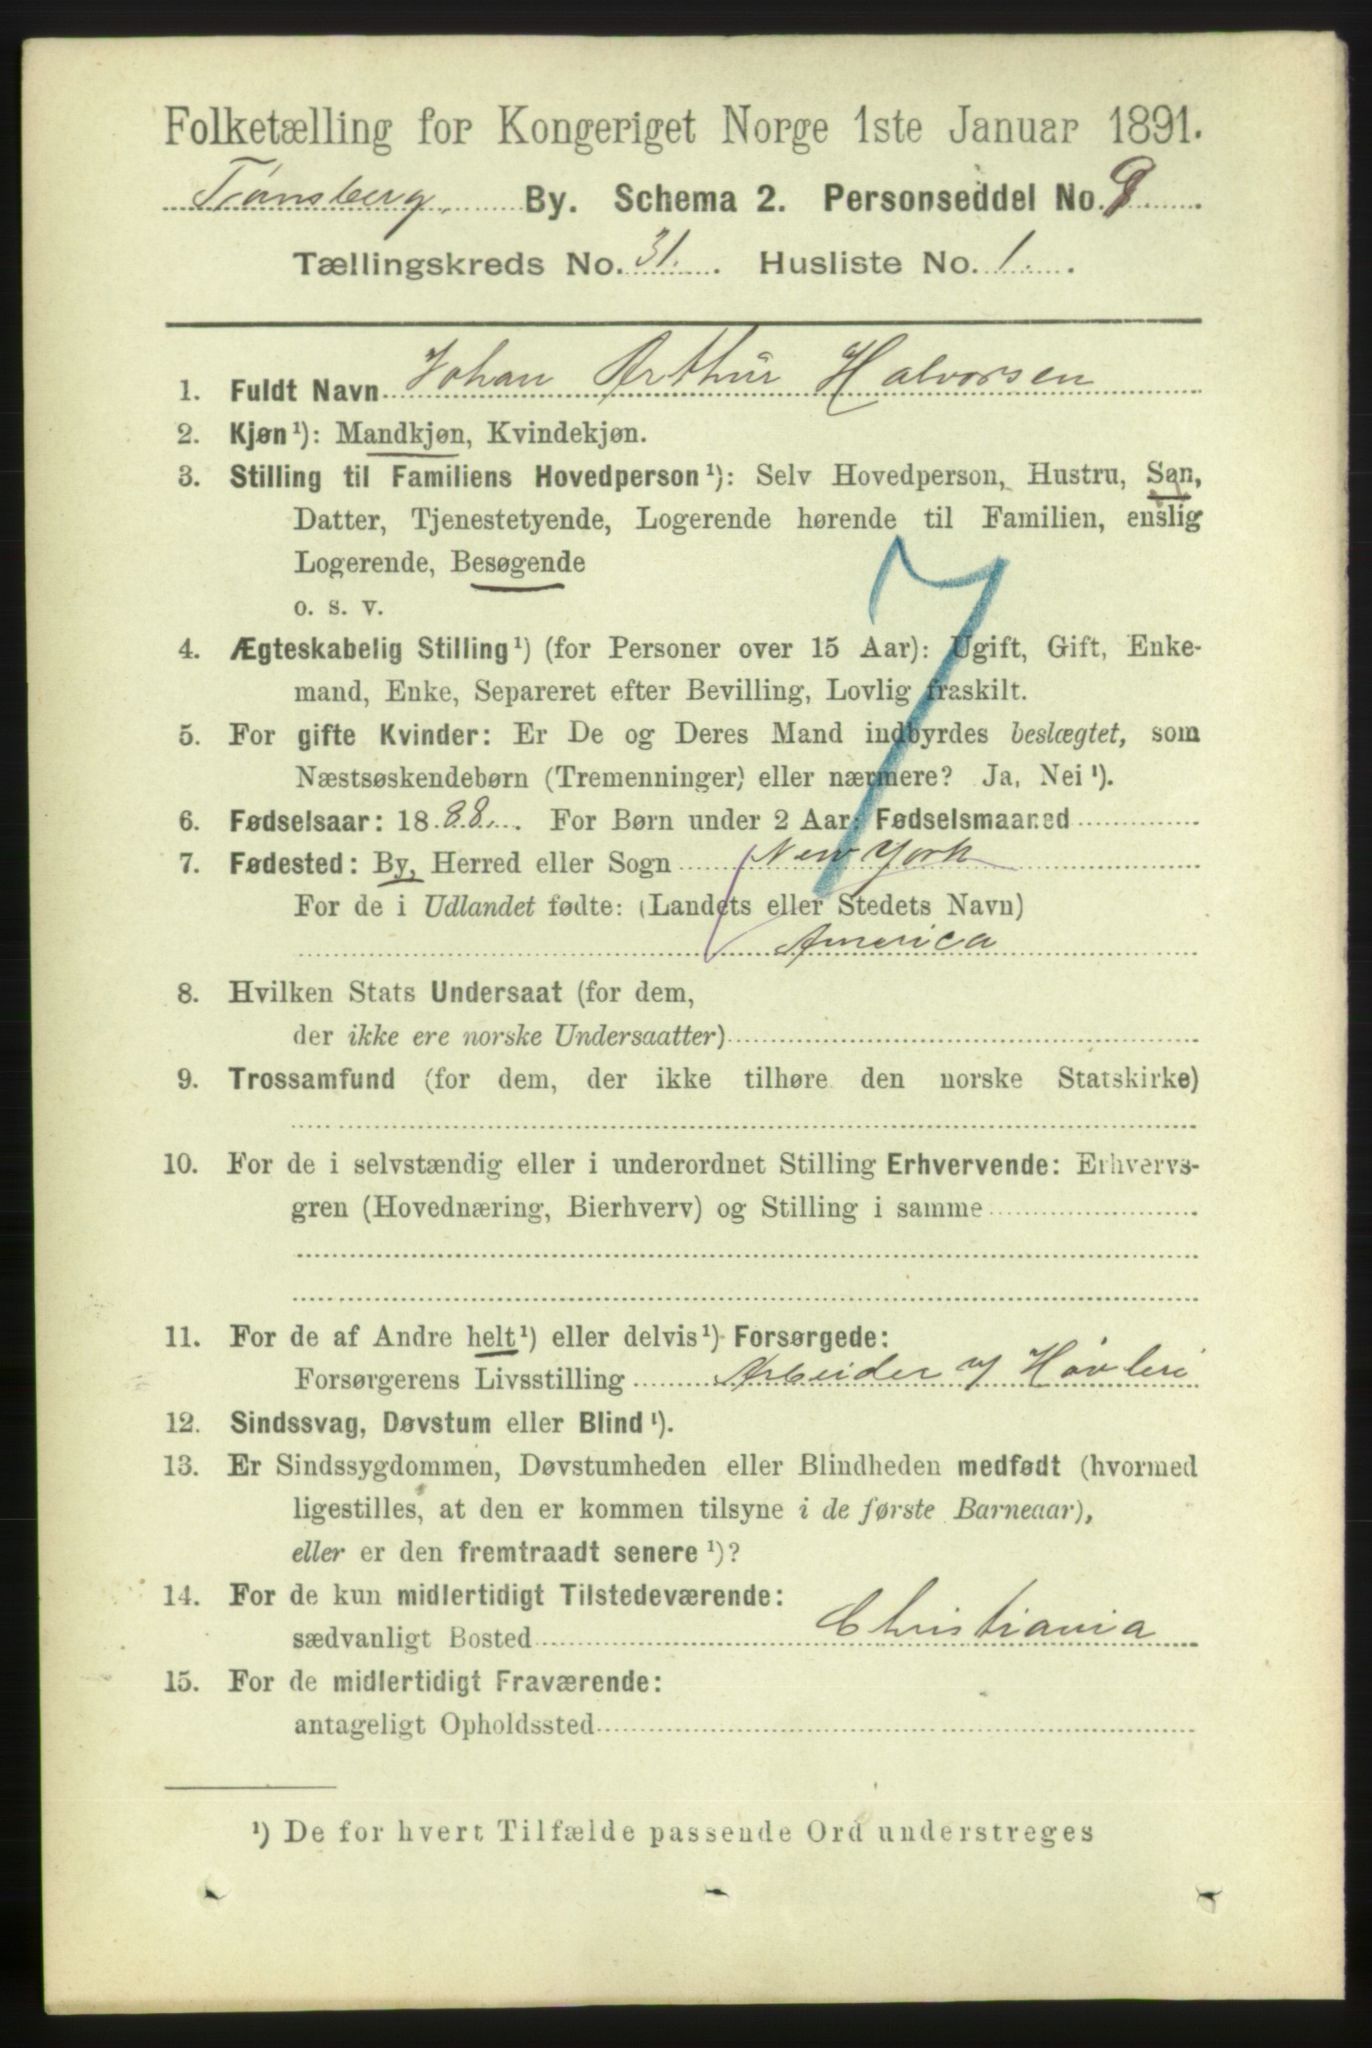 Folketælling for Kongeriget Norge 1ste Januar 1891.
Tønsberg, By. Schema 2. Personseddel No. 8
Tællingskreds No. 31. Husliste No. 1.
1. Fuldt Navn Johan Arthur Halvorsen
2. Kjøn ¹): Mandkjøn, Kvindekjøn.
3. Stilling til Familiens Hovedperson ¹): Selv Hovedperson, Hustru, Søn,
Datter, Tjenestetyende, Logerende hørende til Familien, enslig
Logerende, Besøgende
o. s. v.
7
4. Ægteskabelig Stilling ¹) (for Personer over 15 Aar): Ugift, Gift, Enke-
mand, Enke, Separeret efter Bevilling, Lovlig fraskilt.
5. For gifte Kvinder: Er De og Deres Mand indbyrdes beslægtet, som
Næstsøskendebørn (Tremenninger) eller nærmere? Ja, Nei ¹).
6. Fødselsaar: 1888. For Børn under 2 Aar: Fødselsmaaned
7. Fødested: By, Herred eller Sogn New York
For de i Udlandet fødte: (Landets eller Stedets Navn)
America
8. Hvilken Stats Undersaat (for dem,
der ikke ere norske Undersaatter)
9. Trossamfund (for dem, der ikke tilhøre den norske Statskirke)
10. For de i selvstændig eller i underordnet Stilling Erhvervende: Erhvervs-
gren (Hovednæring, Bierhverv) og Stilling i samme
11. For de af Andre helt ¹) eller delvis ¹) Forsørgede:
Forsørgerens Livsstilling Arbeider v/ Høvleri
12. Sindssvag, Døvstum eller Blind ¹).
13. Er Sindssygdommen, Døvstumheden eller Blindheden medfødt (hvormed
ligestilles, at den er kommen tilsyne i de første Barneaar),
eller er den fremtraadt senere ¹)?
14. For de kun midlertidigt Tilstedeværende:
sædvanligt Bosted Christiania
15. For de midlertidigt Fraværende:
antageligt Opholdssted
¹) De for hvert Tilfælde passende Ord understreges